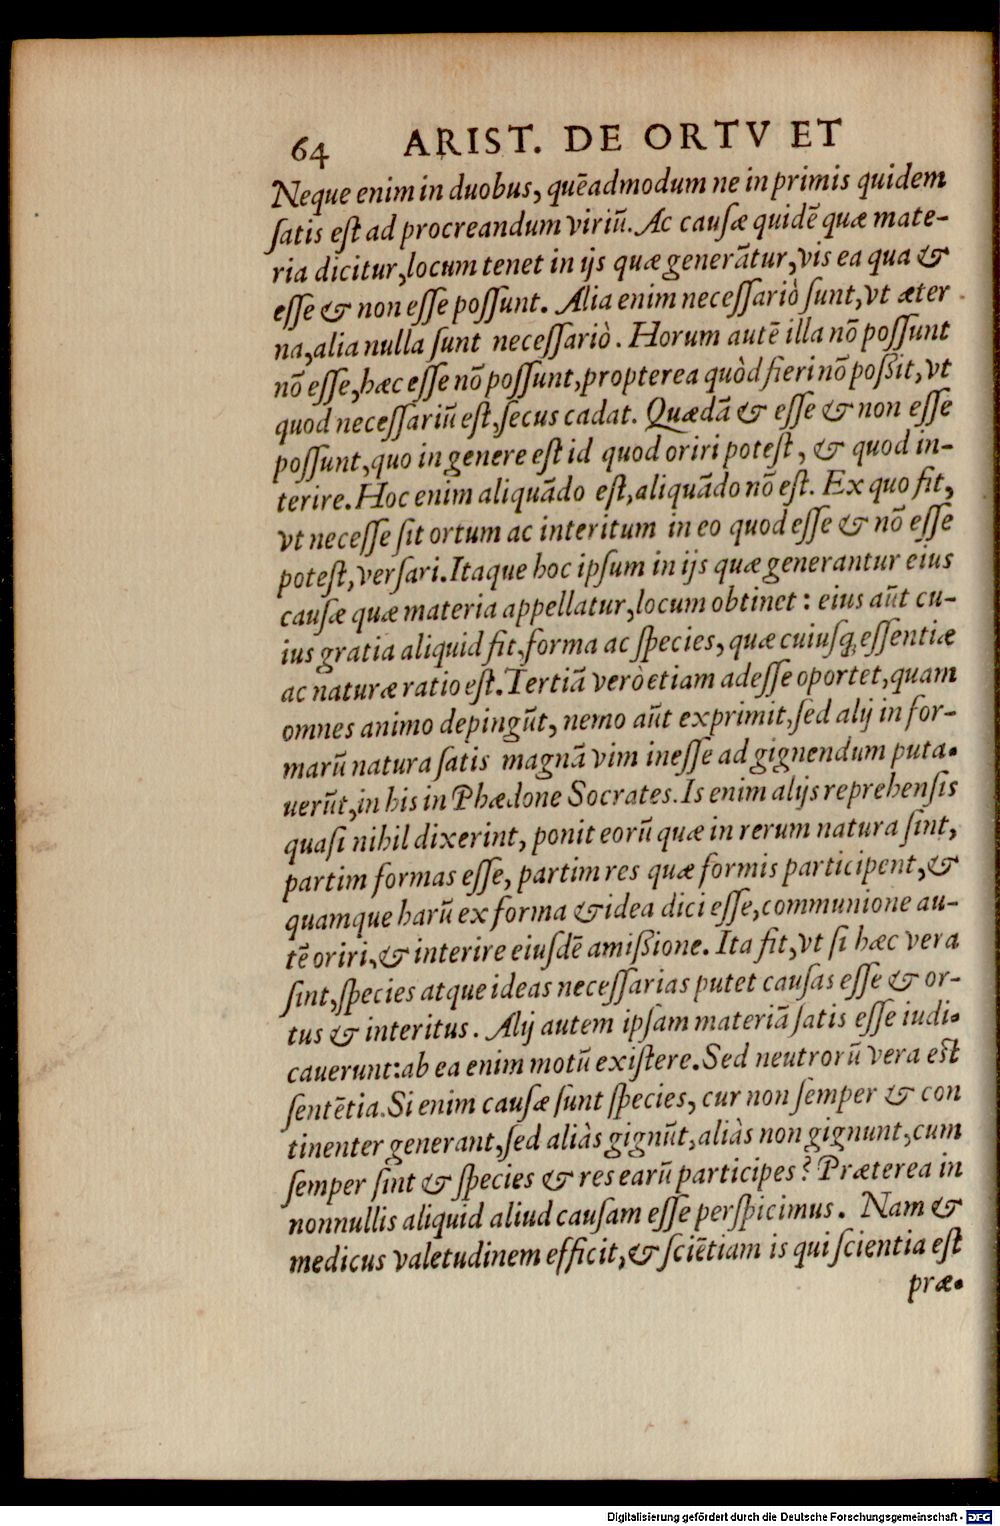 64 ARIST. DE ORTV ET
Neque enim in duobus, quēadmodum ne in primis quidem
ſatis eſt ad procreandum viriū. Ac cauſæ quidē quæ mate-
ria dicitur, locum tenet in ijs quæ generātur, vis ea qua &
eſſe & non eſſe poſſunt. Alia enim neceſſariò ſunt, vt æter
na, alia nulla ſunt neceſſariò. Horum autē illa nō poſſunt
nō eſſe, hæc eſſe nō poſſunt, propterea quòd fieri nō poßit, vt
quod neceſſariū eſt, ſecus cadat. Quædā & eſſe & non eſſe
poſſunt, quo in genere eſt id quod oriri poteſt, & quod in-
terire. Hoc enim aliquādo eſt, aliquādo nō eſt. Ex quo fit,
vt neceſſe ſit ortum ac interitum in eo quod eſſe & nō eſſe
poteſt, verſari. Itaque hoc ipſum in ijs quæ generantur eius
cauſæ quæ materia appellatur, locum obtinet: eius aūt cu-
ius gratia aliquid fit, forma ac ſpecies, quæ cuiuſq; eſſentiæ
ac naturæ ratio eſt. Tertiā verò etiam adeſſe oportet, quam
omnes animo depingūt, nemo aūt exprimit, ſed alij in for-
marū natura ſatis magnā vim ineſſe ad gignendum puta-
uerūt, in his in Phædone Socrates. Is enim alijs reprehenſis
quaſi nihil dixerint, ponit eorū quæ in rerum natura ſint,
partim formas eſſe, partim res quæ formis participent, &
quamque harū ex forma & idea dici eſſe, communione au-
tē oriri, & interire eiuſdē amißione. Ita fit, vt ſi hæc vera
ſint, ſpecies atque ideas neceſſarias putet cauſas eſſe & or-
tus & interitus. Alij autem ipſam materiā ſatis eſſe iudi-
cauerunt: ab ea enim motū exiſtere. Sed neutrorū vera eſt
ſentētia. Si enim cauſæ ſunt ſpecies, cur non ſemper & con
tinenter generant, ſed aliàs gignūt, aliàs non gignunt, cum
ſemper ſint & ſpecies & res earū participes? Præterea in
nonnullis aliquid aliud cauſam eſſe perſpicimus. Nam &
medicus valetudinem efficit, & ſciētiam is qui ſcientia eſt
præ-
Digitalisierung gefördert durch die Deutsche Forschungsgemeinschaft - DFG